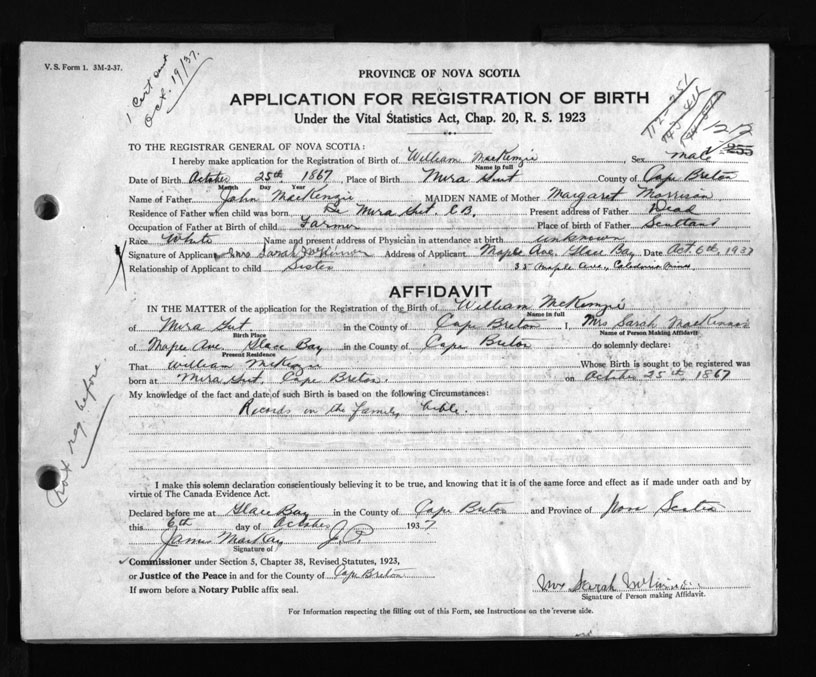 V. S. Form 1. 3M-2-37.
1 Cert sent
Oct. 19/37.
PROVINCE OF NOVA SCOTIA
APPLICATION FOR REGISTRATION OF BIRTH
Under the Vital Statistics Act, Chap. 20, R. S. 1923
1212
255
TO THE REGISTRAR GENERAL OF NOVA SCOTIA:
I hereby make application for the Registration of Birth of William MacKenzie Sex male
Name in full
Date of Birth October 25th 1867 Place of Birth Mira Gut County of Cape Breton
Month Day Year
Name of Father John MacKenzie MAIDEN NAME of Mother Margaret Morrison
Residence of Father when child was born Mira Gut. C.B. Present address of Father Dead
Occupation of Father at Birth of child Farmer Place of birth of Father Scotland
Race White Name and present address of Physician in attendance at birth unknown
Signature of Applicant Mrs Sarah McKinnon Address of Applicant Maple Ave. Glace Bay Date Oct 6th 1937
Relationship of Applicant to child Sister 35 Maple Ave., Caledonia Mines
AFFIDAVIT
IN THE MATTER of the application for the Registration of the Birth of William McKenzie
Name in full
of Mira Gut. in the County of Cape Breton I, Mrs Sarah MacKinnon
Birth Place Name of Person Making Affidavit
of Maple Ave Glace Bay in the County of Cape Breton do solemnly declare:
Present Residence
That William McKenzie Whose Birth is sought to be registered was
born at Mira Gut, Cape Breton. on October 25th, 1867
My knowledge of the fact and date of such Birth is based on the following Circumstances:
Records in the family bible.
Not reg. before.
I make this solemn declaration conscientiously believing it to be true, and knowing that it is of the same force and effect as if made under oath and by
virtue of The Canada Evidence Act.
Declared before me at Glace Bay in the County of Cape Breton and Province of Nova Scotia
this 6th day of October 1937
James MacKay J.P.
Signature of
Commissioner under Section 5, Chapter 38, Revised Statutes, 1923,
or Justice of the Peace in and for the County of Cape Breton
If sworn before a Notary Public affix seal.
Mrs Sarah McKinnon
Signature of Person making Affidavit.
For Information respecting the filling out of this Form, see Instructions on the reverse side.